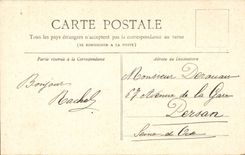 CARTE POSTALE
Tous les pays étrangers n'acceptent pas la correspondance au verso
(SE RENSEIGNER A LA POSTE)
Partie réservée à la Correspondance
Adresse du Destinataire
Bonjour
Rachel
Monsieur
67 Avenue de la Gare
Persan
Seine et Oise